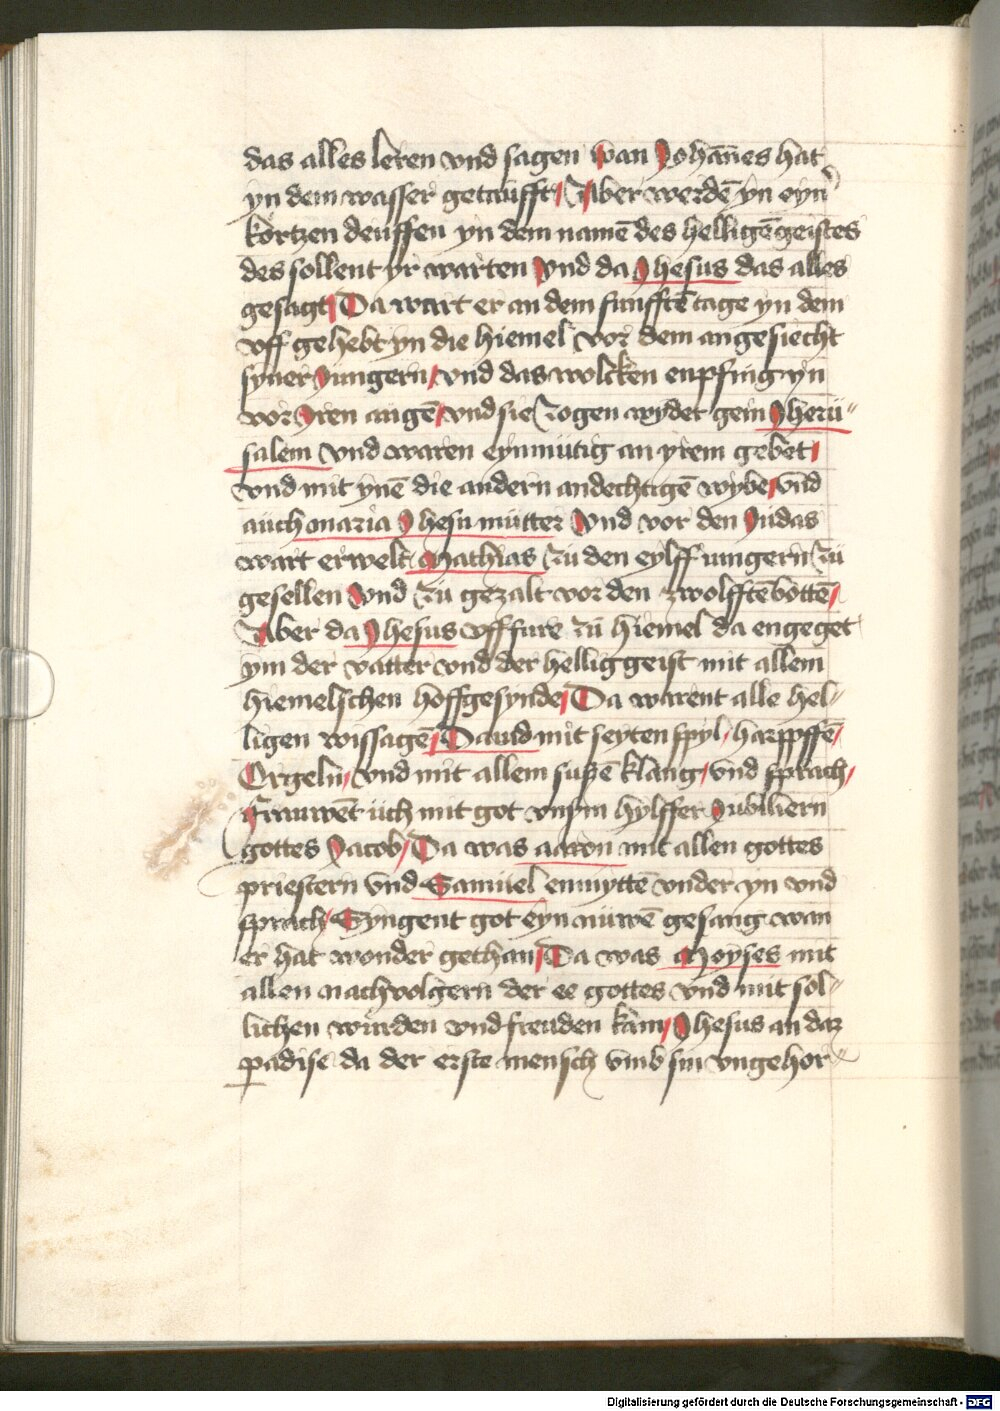 das alles leren vnd sagen wan Johānes hat
yn dem wasser getaüfft / Aber werdē yn eyner
kortzen deuffen yn dem namē des helligē geistes
des sollent yr warten Vnd da Jhesus das alles
gesagt / Da wart er an dem funfftē tage yn dem
vff gehebt yn die hiemel vor dem angesiecht
syner Jungern / vnd das wolcken enpfing yn
vor Jren augē / vnd sie zogen wyder gein Jherü„
salem vnd waren eynmütig an yrem gebet /
vnd mit ynē die andern andechtigē wybe / vnd
aüch maria Jhesu mütter Vnd vor den Judas
wart erwelt Mathias zü den eylff iungern zü
gesellen Vnd zü gezalt vor den zwolfftē bottē /
Aber da Jhesus vff fure zü hiemel da engeget
ym der vatter vnd der hellig geist mit allem
hiemelschen hoffgesynde / Da warent alle hel„
ligen wissagē / Dauid mit seyten spyl / harpffē /
Orgeln / vnd mit allem sussē klang / vnd sprach /
frauwēt üch mit got vnsm hylffer Jubiliern
gottes Jacob / Da was aaron mit allen gottes
priestern vnd Samüel enmyttē vnder yn vnd
sprach / Syngent got eyn nüwē gesang wan
er hat wonder gethan / Da was Moyses mit
allen nachvolgern der ee gottes vnd mit sol„
lichen würden vnd freuden kam / Jhesus an daz
padise da der erste mensch vmb sin vngehor„
Digitalisierung gefördert durch die Deutsche Forschungsgemeinschaft - DFG